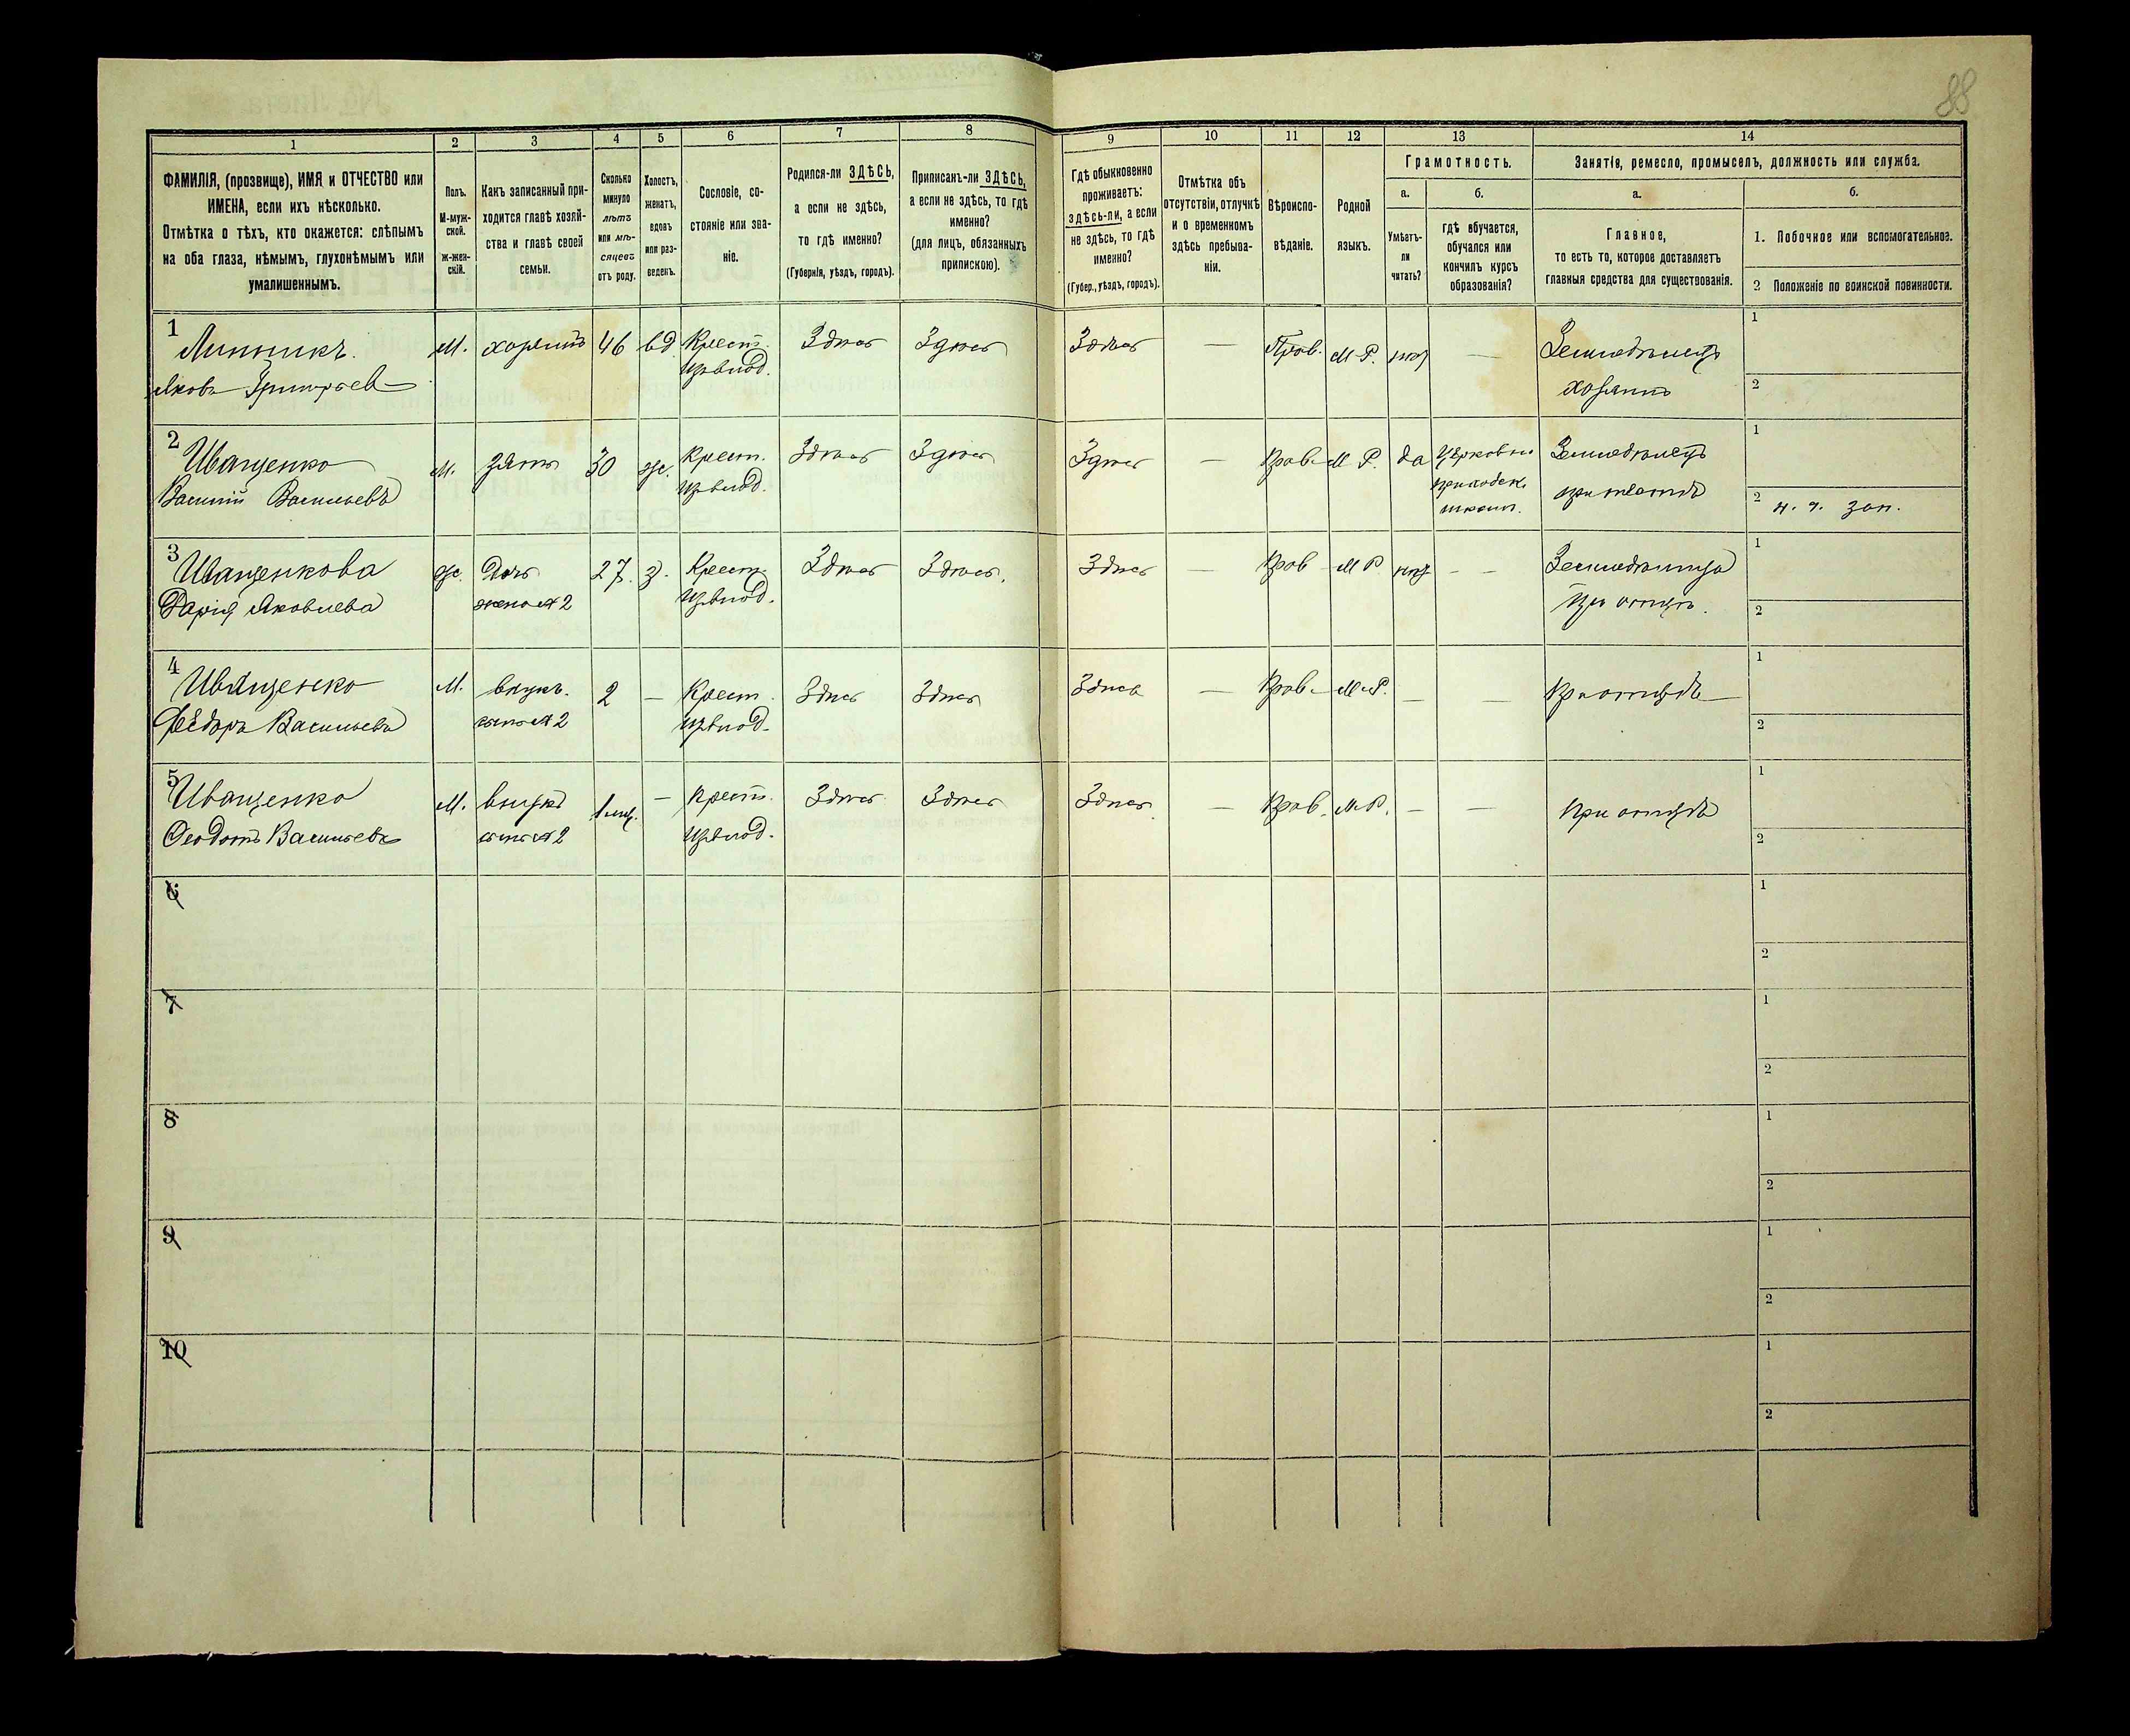 88
1 2 3 4 5 6 7 8 9 10 11 12 13 14
ФАМИЛІЯ, (прозвище), ИМЯ и ОТЧЕСТВО или
ИМЕНА, если ихъ нѣсколько.
Отмѣтка о тѣхъ, кто окажется: слѣпымъ
на оба глаза, нѣмымъ, глухонѣмымъ или
умалишеннымъ.
Полъ.
М-муж-
ской.
Ж-жен-
скій.
Какъ записанный при-
ходится главѣ хозяй-
ства и главѣ своей
семьи.
Сколько
минуло
лѣтъ
или мѣ-
сяцевъ
отъ роду.
Холостъ,
женатъ,
вдовъ
или раз-
веденъ.
Сословіе, со-
стояніе или зва-
ніе.
Родился-ли ЗДѢСЬ,
а если не здѣсь,
то гдѣ именно?
(Губернія, уѣздъ, городъ).
Приписанъ-ли ЗДѢСЬ,
а если не здѣсь, то гдѣ
именно?
(для лицъ, обязанныхъ
припискою).
Гдѣ обыкновенно
проживаетъ:
здѣсь-ли, а если
не здѣсь, то гдѣ
именно?
(Губер., уѣздъ, городъ).
Отмѣтка объ
отсутствіи, отлучкѣ
и о временномъ
здѣсь пребыва-
ніи.
Вѣроиспо-
вѣданіе.
Родной
языкъ.
Грамотность.
а.
Умѣетъ-
ли
читать?
б.
гдѣ обучается,
обучался или
кончилъ курсъ
образованія?
Занятіе, ремесло, промыселъ, должность или служба.
а.
Главное,
то есть то, которое доставляетъ
главныя средства для существованія.
б.
1. Побочное или вспомогательное.
2 Положеніе по воинской повинности.
1
Линникъ.
Яковъ Григорьев
М. хозяинъ 46 вд Крест.
Здѣсь Здѣсь Здѣсь — Прав. М.Р. нѣт —
Земледѣлецъ
хозяинъ
1
2
2
Иващенко
Василій Васильевъ
М. зять 30 ж. Крест.
Здѣсь Здѣсь Здѣсь — Прав. М.Р. да
Церковно
приходск.
школ.
Земледѣлецъ
при тестѣ
1
2 н. ч. зап.
3
Иващенкова
Дарія Яковлева
ж. Дочь
жена 2
27. з. Крест.
Здѣсь Здѣсь. Здѣсь — Прав М Р нѣт — —
Земледѣлица
при отцѣ.
1
2
4
Иващенко
Ѳедоръ Васильевъ
М. внукъ.
сынъ 2
2 — Крест.
Здѣсь Здѣсь Здѣсь — Прав. М.Р. — —
При отцѣ
1
2
5
Иващенко
Ѳеодотъ Васильевъ
М. внукъ
сынъ 2
1 мѣс. — Крест.
Здѣсь Здѣсь Здѣсь — Прав. М.Р. — —
При отцѣ
1
2
6
1
2
7
1
2
8
1
2
9
1
2
10
1
2